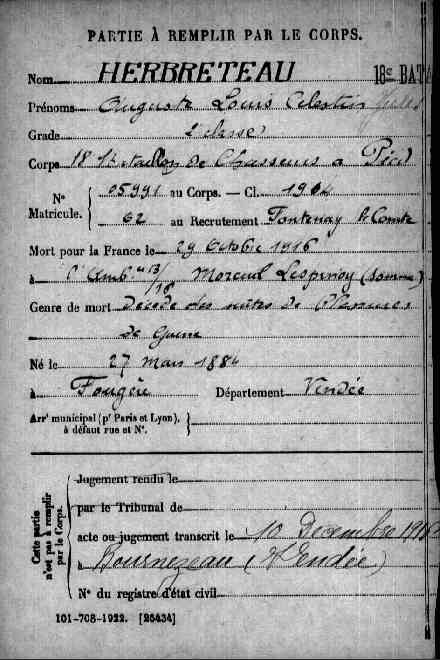 PARTIE À REMPLIR PAR LE CORPS.
Nom HERBRETEAU 18e BATA
Prénoms Auguste Louis Célestin Jules
Grade 2e classe
Corps 18e Bataillon de Chasseurs à Pied
No Matricule. 05991 au Corps. — Cl. 1904
62 au Recrutement Fontenay le Comte
Mort pour la France le 29 Octobre 1916
à l'Amb. 13/18 Moreuil Lespinoy (Somme)
Genre de mort Décédé des suites de Blessures
de Guerre
Né le 27 Mars 1884
à Fougeré Département Vendée
Arrt municipal (pr Paris et Lyon),
à défaut rue et No.
Cette partie n'est pas à remplir par le Corps.
Jugement rendu le
par le Tribunal de
acte ou jugement transcrit le 10 Décembre 1916
à Bournezeau (Vendée)
No du registre d'état civil
101-708-1922. [26434]